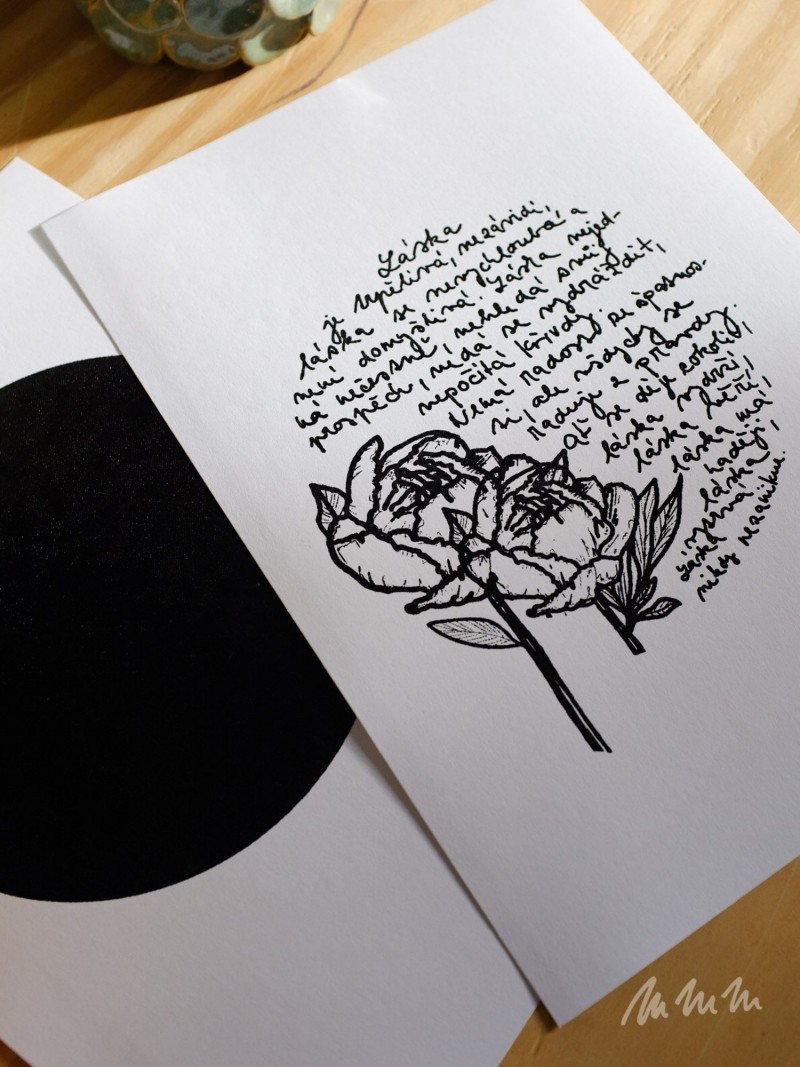 Láska
je trpělivá, nezávidí,
láska se nevychloubá a
není domýšlivá. Láska nejed-
ná nečestně, nehledá svůj
prospěch, nedá se vydráždit,
nepočítá křivdy.
Nemá radost ze špatnos-
ti, ale vždycky se
raduje z pravdy.
Ať se děje cokoliv,
láska vydrží,
láska věří,
láska má
naději,
láska
vytrvá.
Láska
nikdy nezanikne.
mmm